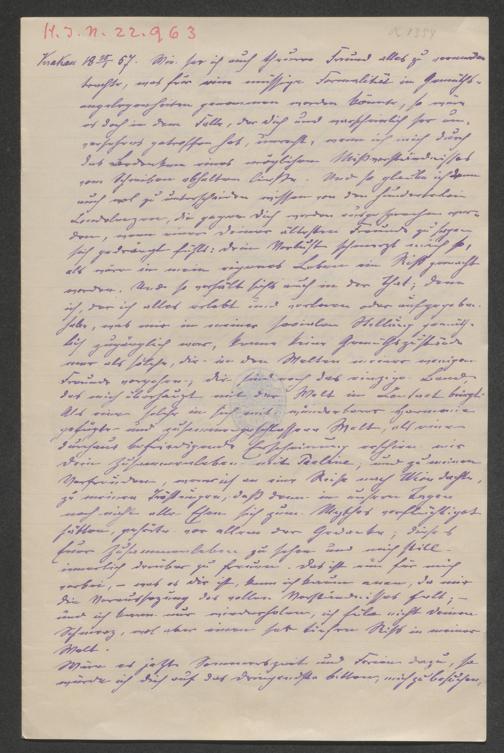 H. I. N. 22.963
Krakau 18 57. Wie sehr ich auch theurer Freund alles zu vermeiden
trachte, was für eine müssige Formalität in Gemüths-
angelegenheiten genommen werden könnte, so wäre
es doch in dem Falle, der dich und wahrscheinlich sehr un-
getroffen hat, unrecht, wenn ich mich durch
das Bedenken eines möglichen Mißverständnisses
vom Schreiben abhalten ließe. Und so glaube ich denn
auch wol zu unterscheiden wissen von den hunderterlei
Condolenzen, die gegen dich werden ausgesprochen wor-
den, wenn einer deiner ältesten Freunde zu sagen
sich gedrängt fühlt: dein Verlust schmerzt mich so,
als wäre in mein eigenes Leben ein Riß gemacht
worden. Und so verhält sichs auch in der That; denn
ich, der ich alles erlebt und verloren oder aufgegeben
habe, was mir in meiner socialen Stellung gemüth-
lich zugänglich war, kenne keine Gemüthszustände
mehr als solche, die in den Welten meiner wenigen
Freunde vorgehen; die sind noch das einzige Band,
das mich überhaupt mit der Welt in Contact bringt.
Als eine selbst in sich mit wunderbarer Harmonie
gefügte und zusammengeschlossene Welt, als eine
durchaus befriedigende Erscheinung erschien mir
dein Zusammenleben mit Pauline, und zu meinen
Vorfreuden, wenn ich an eine Reise nach Wien dachte,
zu meinen Tröstungen, daß denn in unsern Tagen
noch nicht alle Ehen sich zum Mythos verflüchtigt
hätten, gehörte vor allem der Gedanke, dieses
Zusammenleben zu sehen und mich still-
innerlich darüber zu freuen. Das ist nun für mich
vorbei, – was es dir ist, kann ich kaum ahnen, da mir
die Voraussetzung des vollen Verständnisses fehlt; –
und ich kann nur wiederholen, ich fühle nicht deinen
Schmerz, wol aber einen sehr tiefen Riß in meiner
Welt.
Wäre es jetzt Sommerszeit und Ferien dazu, so
würde ich dich auf das dringendste bitten, mich zu besuchen,